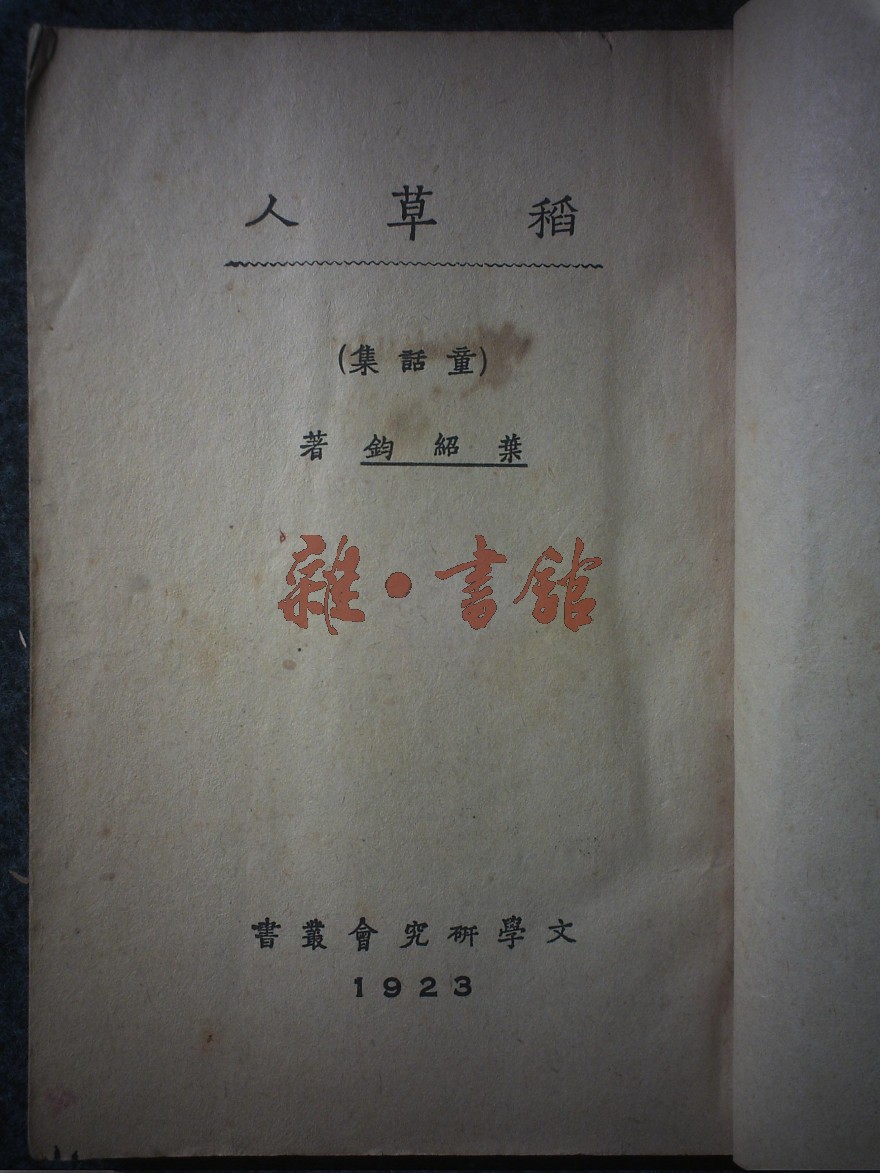 稻草人
(童話集)
葉紹鈞著
雜·書館
文學研究會叢書
1923